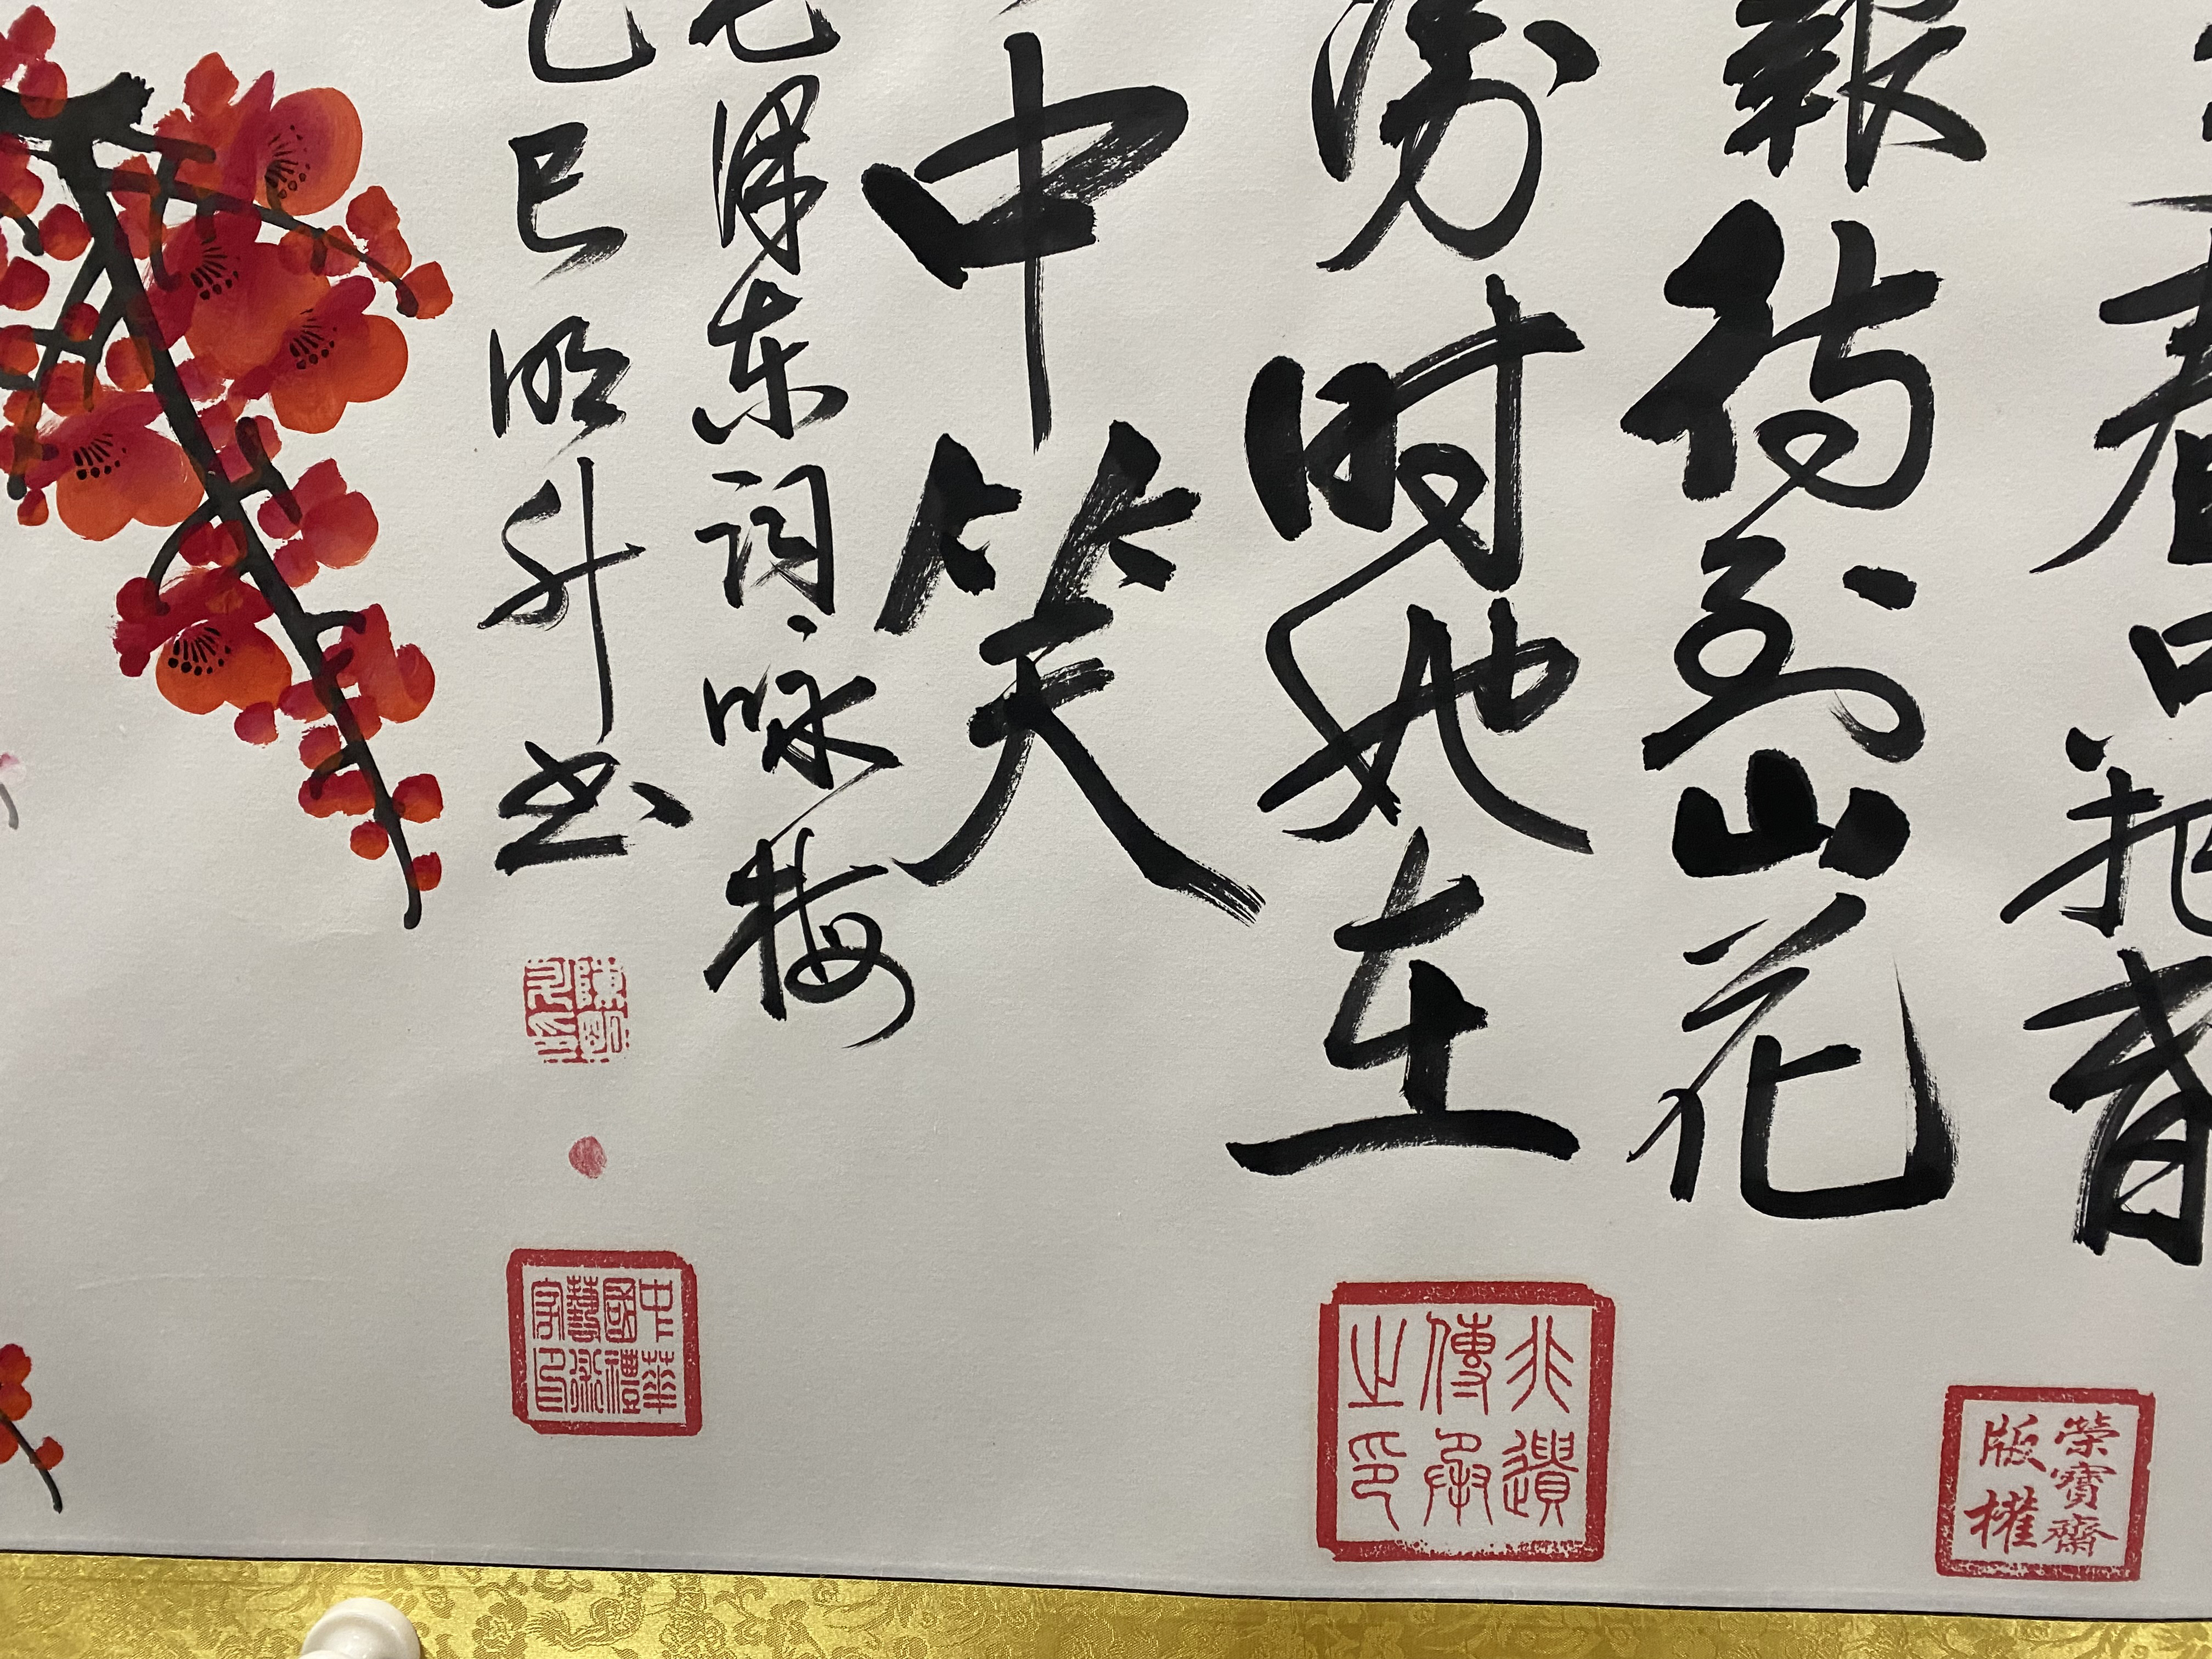 春只把春
報待到山花
漫时她在
中笑
毛泽东词、咏梅
乙巳明升书
陳明升印
中華國禮藝術家印
非遺傳承之印
榮寶齋
版權